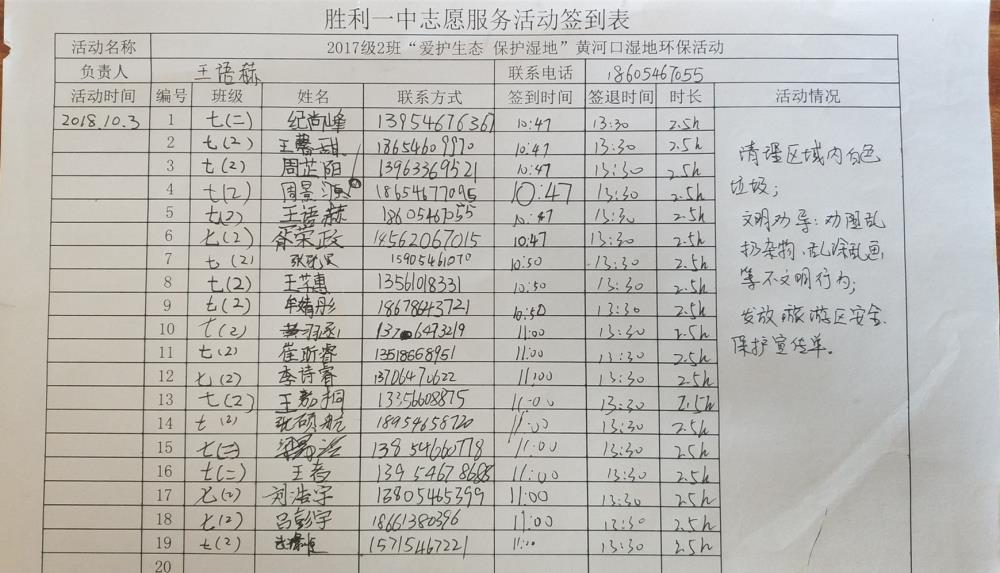 胜利一中志愿服务活动签到表
活动名称 2017级2班“爱护生态 保护湿地”黄河口湿地环保活动
负责人 王语赫 联系电话 18605467055
活动时间 编号 班级 姓名 联系方式 签到时间 签退时间 时长 活动情况
2018.10.3 1 七(二) 纪尚峰 13954676367 10:47 13:30 2.5h
2 七(2) 王馨甜 18654609970 10:47 13:30 2.5h
3 七(2) 周芷阳 13963369521 10:47 13:30 2.5h
4 七(2) 周景源 18654677095 10:47 13:30 2.5h
5 七(2) 王语赫 18605467055 10:47 13:30 2.5h
6 七(2) 胥荣政 14562067015 10:47 13:30 2.5h
7 七(2) 15905461070 10:50 13:30 2.5h
8 七(2) 王芊惠 13561018331 10:50 13:30 2.5h
9 七(2) 牟婧彤 18678643721 10:50 13:30 2.5h
10 七(2) 黄羽丞 11:00 13:30 2.5h
11 七(2) 崔昕睿 13518668951 11:00 13:30 2.5h
12 七(2) 李诗睿 13706470622 11:00 13:30 2.5h
13 七(2) 王荔桐 13356608875 11:00 13:30 2.5h
14 七(2) 张硕航 18954658720 11:00 13:30 2.5h
15 七(二) 13854660778 11:00 13:30 2.5h
16 七(二) 王者 13954678688 11:00 13:30 2.5h
17 七(2) 刘浩宇 13805465399 11:00 13:30 2.5h
18 七(2) 吕彭宇 18661380396 11:00 13:30 2.5h
19 七(2) 15715467221 11:00 13:30 2.5h
20
清理区域内白色
垃圾;
文明劝导:劝阻乱
扔杂物、乱涂乱画
等不文明行为;
发放旅游区安全
保护宣传单。